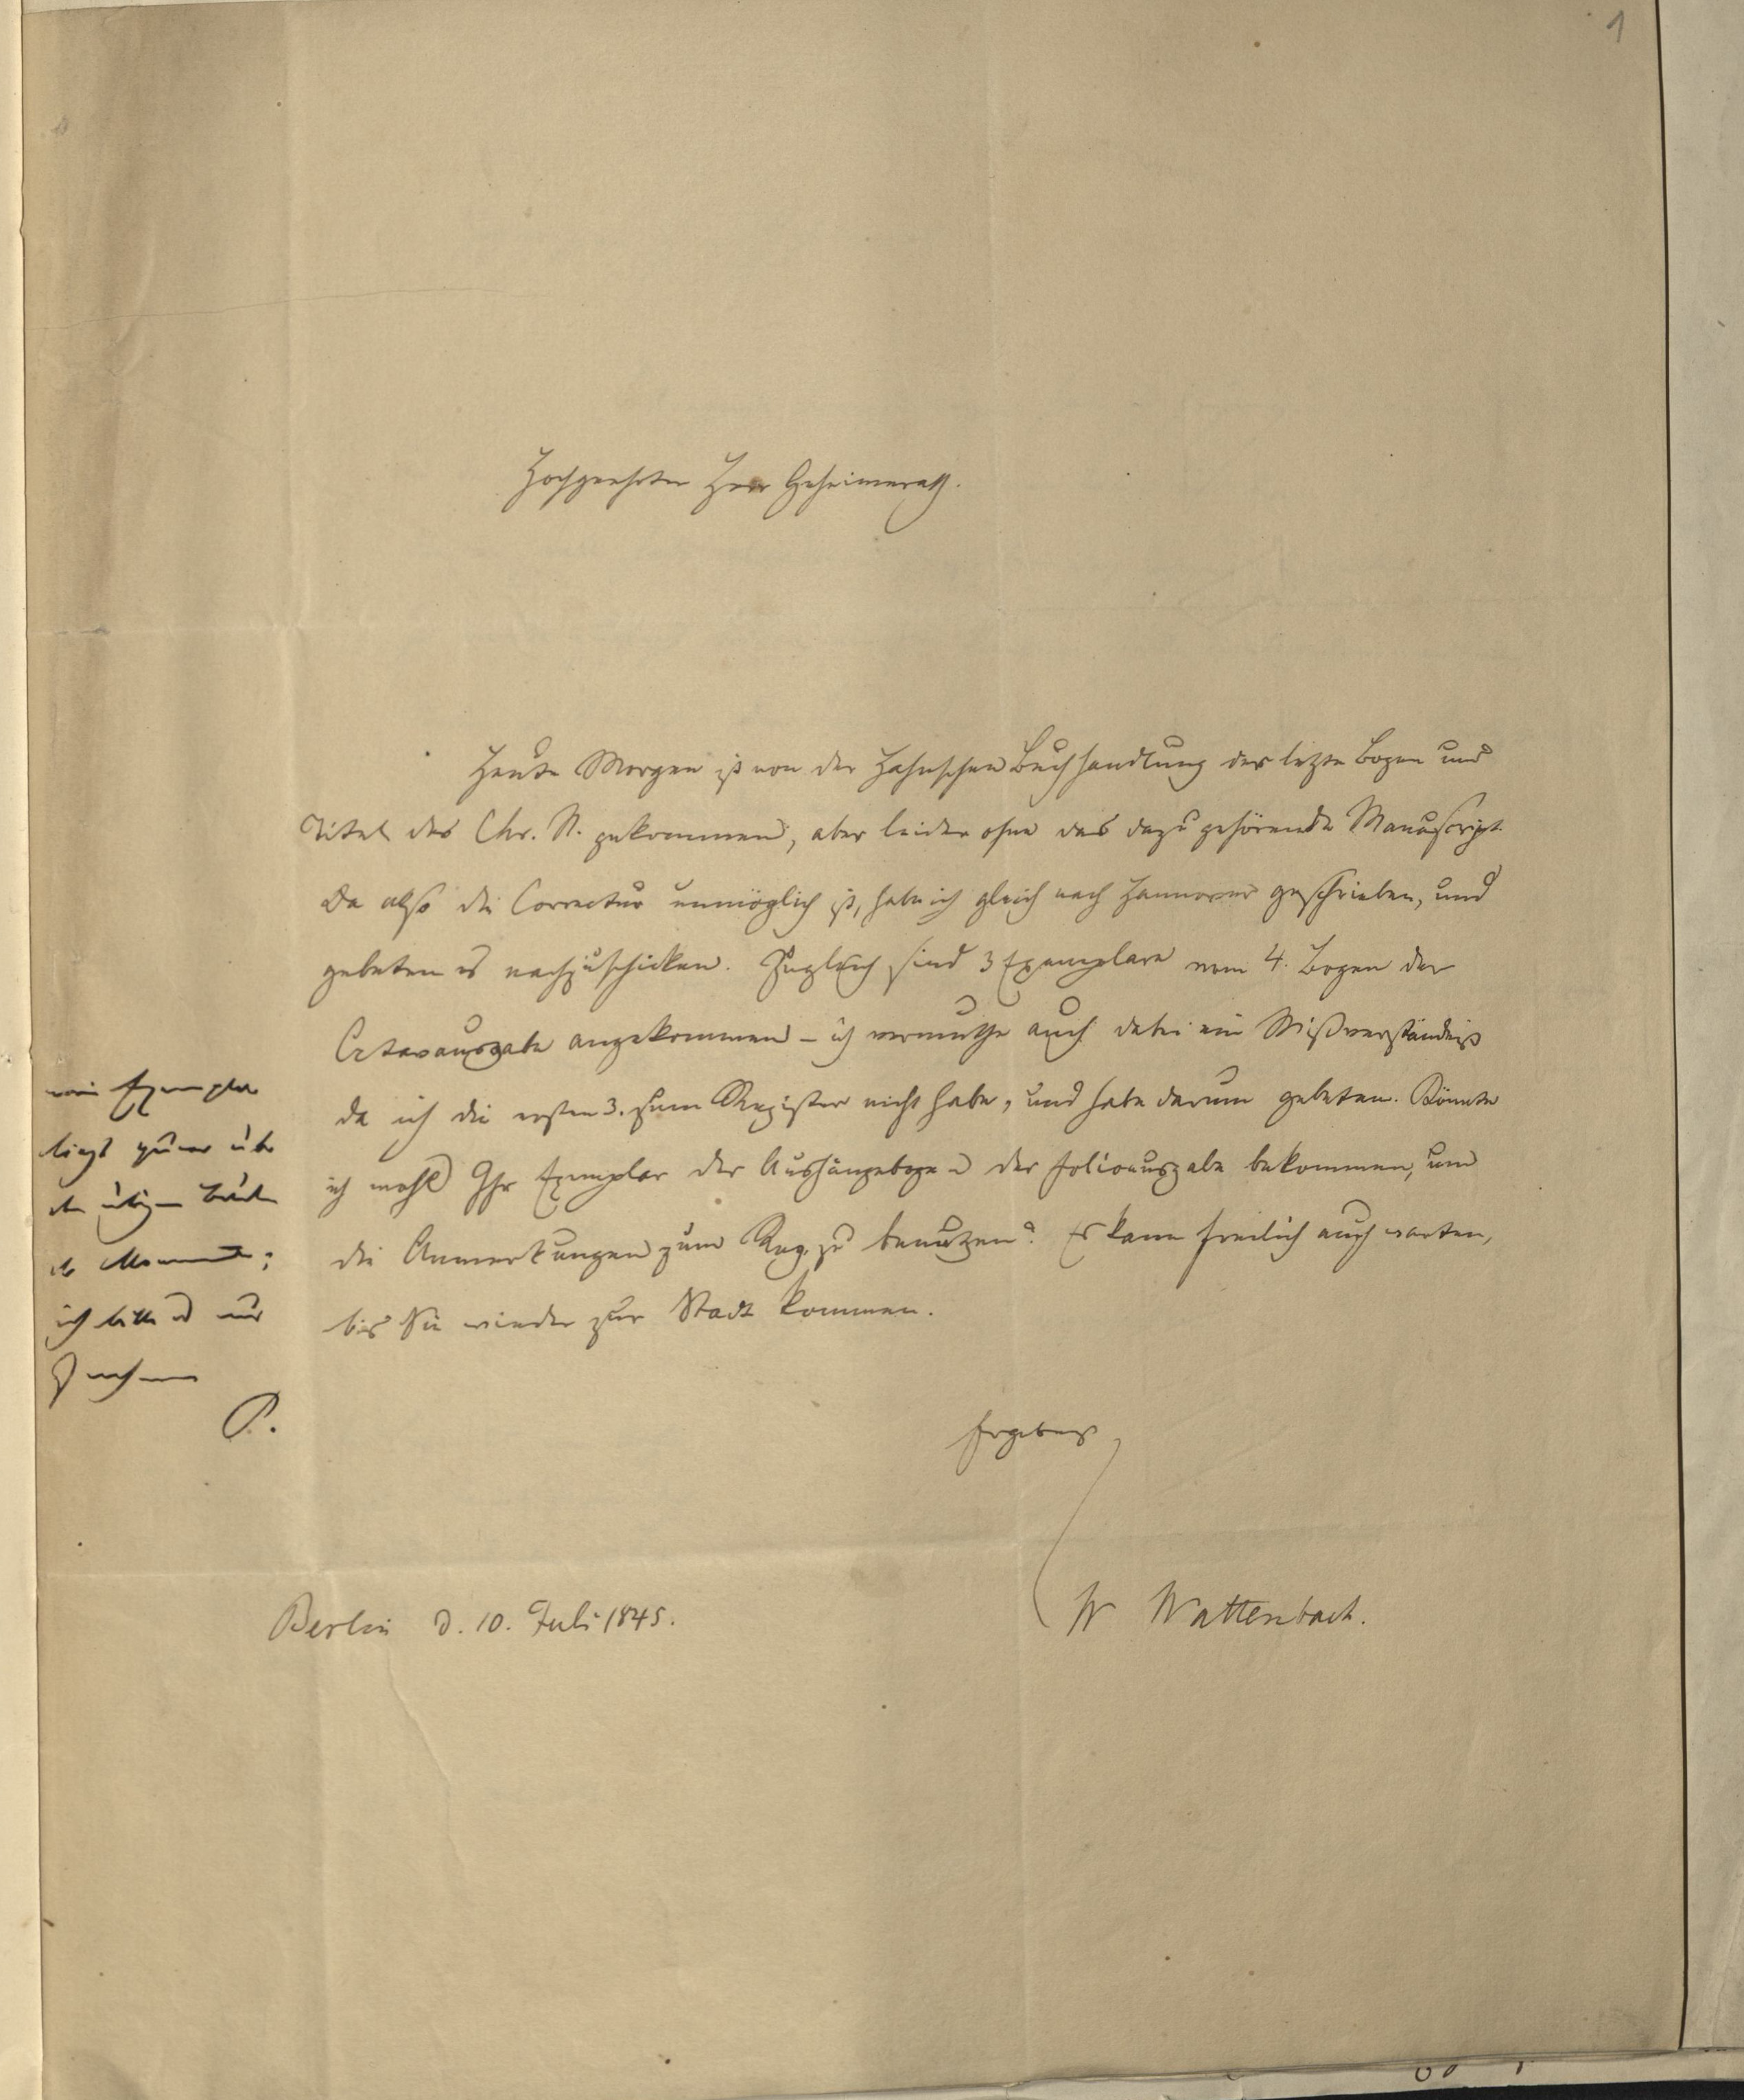 1
Hochgeehrter Herr Geheimerath.
Heute Morgen ist von der Hahnschen Buchhandlung der letzte Bogen und
Titel des Chr. N. gekommen, aber leider ohne das dazu gehörende Manuscript.
Da also die Correctur unmöglich ist, habe ich gleich nach Hannover geschrieben, und
gebeten es nachzuschicken. Zugleich sind 3 Exemplare vom 4. Bogen der
Octavausgabe angekommen – ich vermuthe auch dabei ein Mißverständniß
da ich die ersten 3. zum Register nicht habe, und habe darum gebeten. Könnte
ich wohl Ihr Exemplar der Aushängebogen der Folioausgabe bekommen, um
die Anmerkungen zum Reg. zu benutzen? Es kann freilich auch warten,
bis Sie wieder zur Stadt kommen.
mein Exemplar
liegt über
die übrigen Bände
der Monumente;
ich bitte es nur
zu nehmen
P.
Ergebenst
W Wattenbach.
Berlin d. 10. Juli 1845.